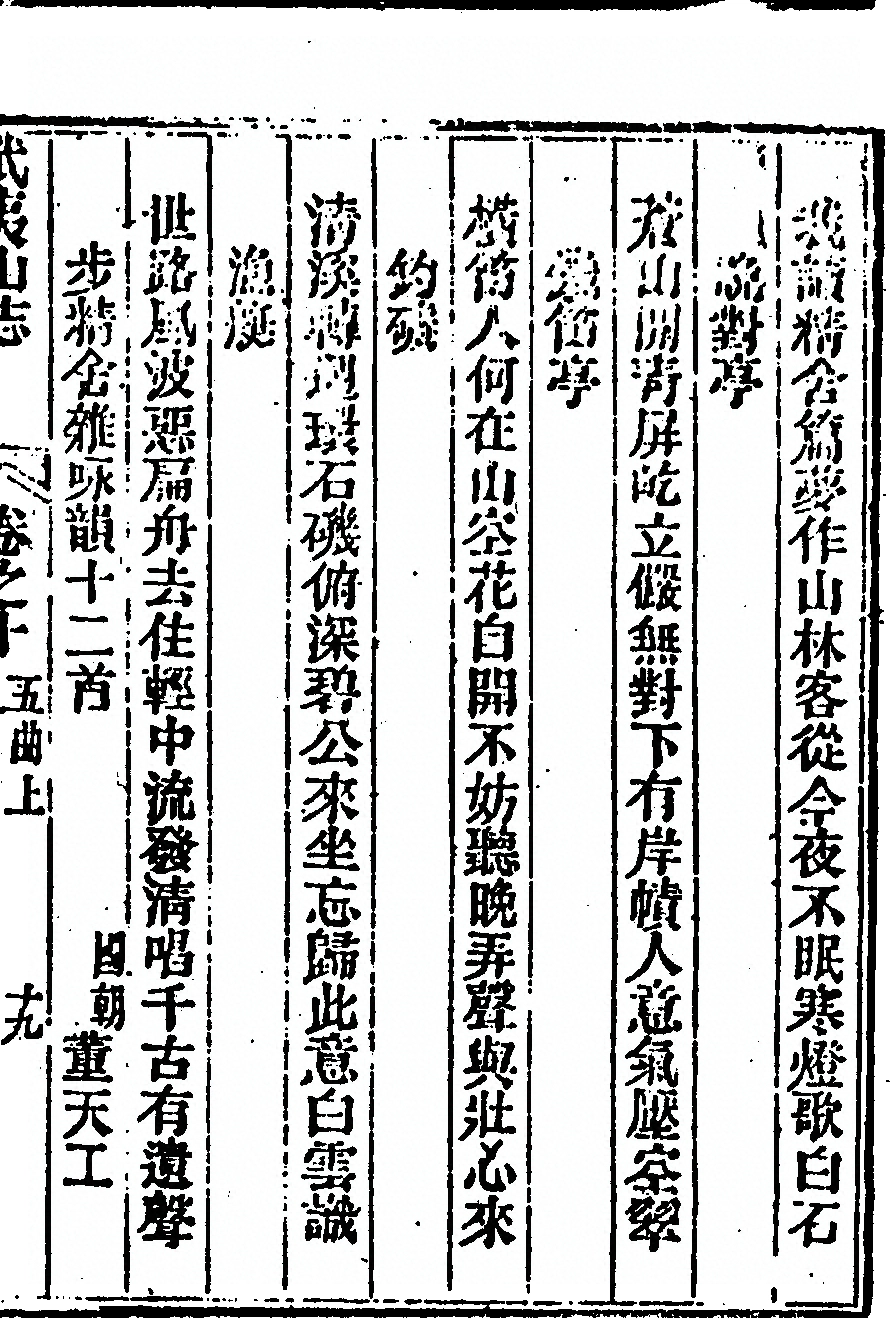 我讀精舍篇夢作山林客從今夜不眠寒燈歌白石
流對亭
蒼山開靑屏屹立儼無對下有岸幘人意氣壓空翠
鐵笛亭
橫笛人何在山空花自開不妨聽晚弄聲與壯心來
釣磯
清溪轉環石磯俯深碧公來坐忘歸此意白雲識
漁艇
世路風波惡扁舟去住輕中流發淸唱千古有遺聲
步精舍雜咏韻十二首 國朝董天工
武夷山志 卷之下 五曲上 十九